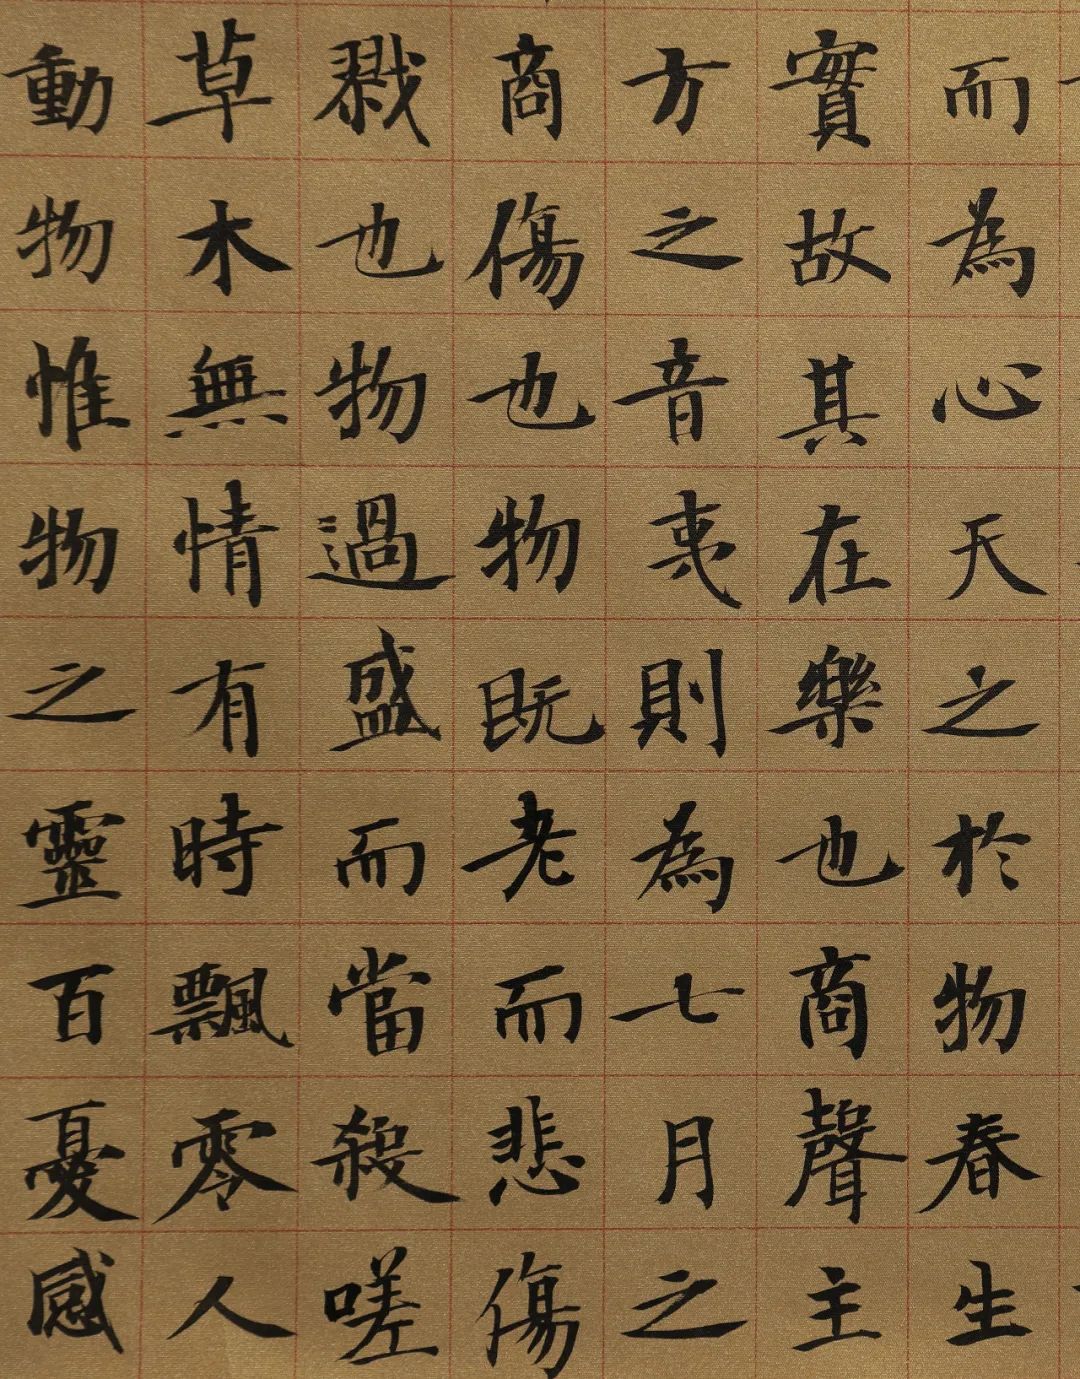 而為心天之於物春生
實故其在樂也商聲主
方之音夷則為七月之
商傷也物既老而悲傷
戮也物過盛而當殺嗟
草木無情有時飄零人
動物惟物之靈百憂感